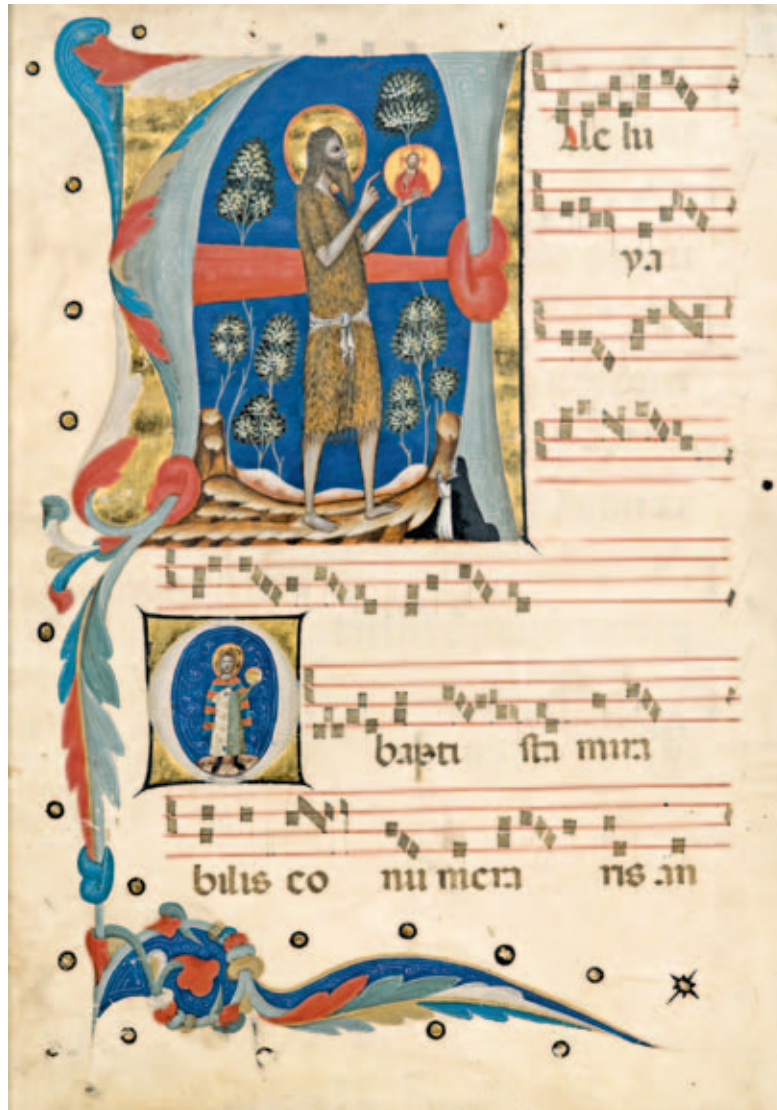 A
Alle lu
ya
O
bapti sta mira
bilis co nu mera ris an